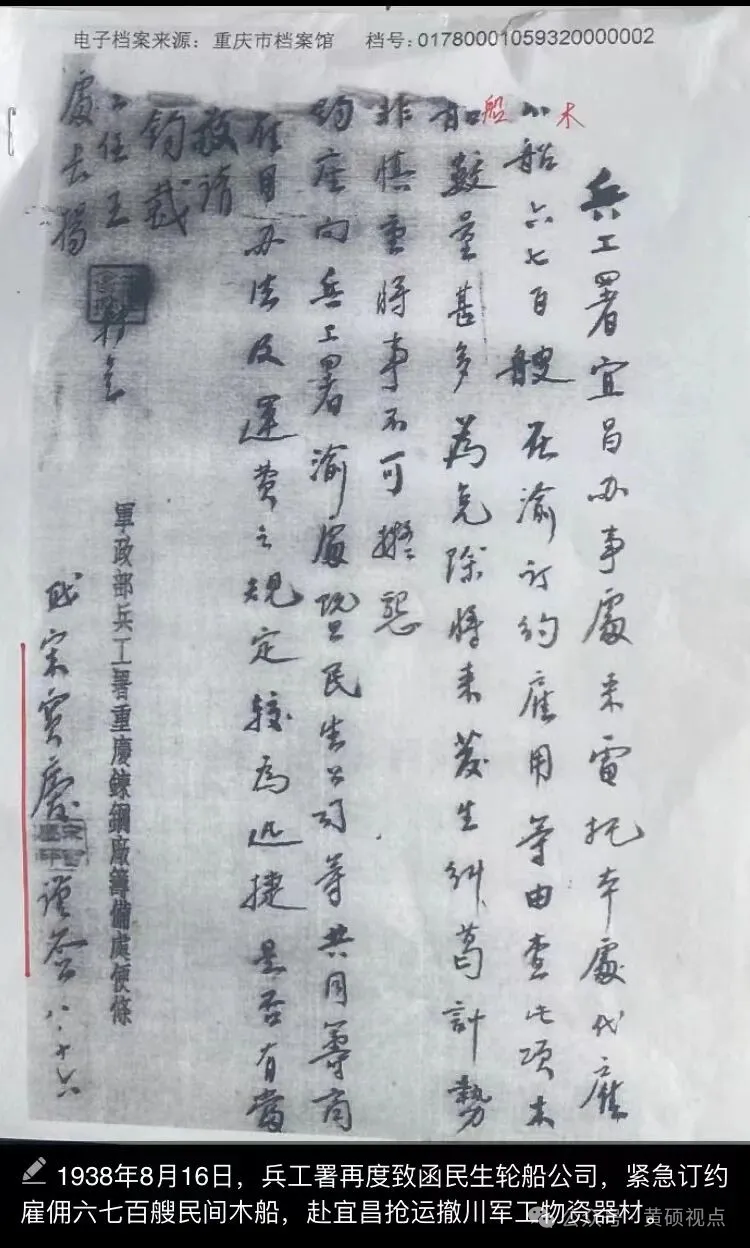 电子档案来源：重庆市档案馆 档号：01780001059320000002
兵工署宜昌办事處来電托本處代雇
木
小船六七百艘在渝订约雇用等由查此项木
船
船數量甚多為免除將来發生糾葛計勢
非慎重將事不可擬懇
钧座向兵工署渝處暨民生公司等共同籌商
雇用办法及運費之規定較為迅捷是否有當
敬請
钧裁
主任王
處长楊
軍政部兵工署重慶鍊鋼廠籌備處便條
职宋寶慶谨签 八·十六
1938年8月16日，兵工署再度致函民生轮船公司，紧急订约
雇佣六七百艘民间木船，赴宜昌抢运撤川军工物资器材。
公众号·黄硕视点